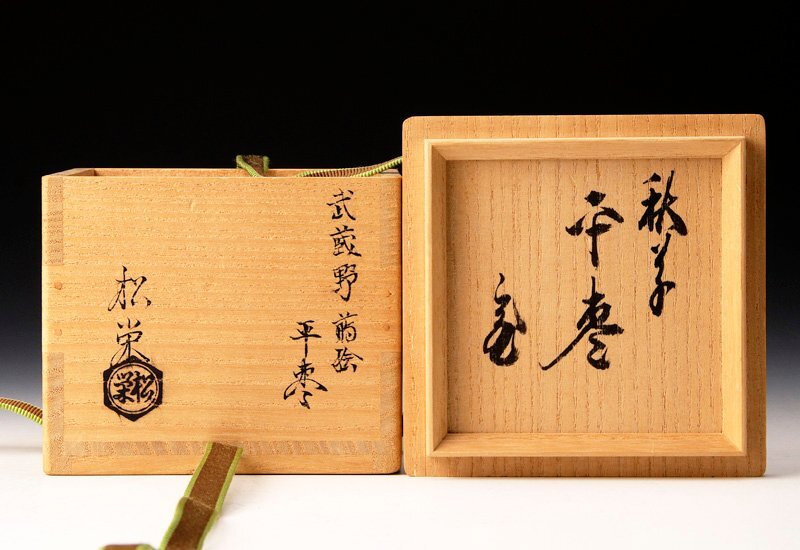 武蔵野蒔絵
平棗
松栄
松栄
秋草
平棗